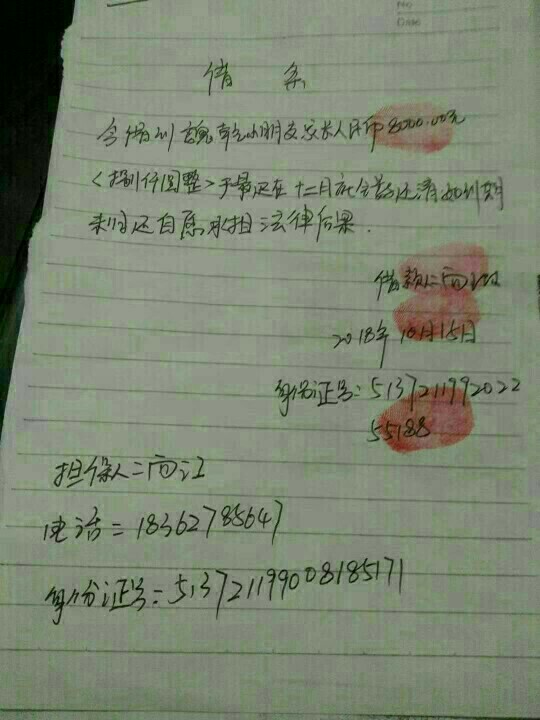 No
Date
借 条
今借到 魏乾小朋友家长人民币8000.00元
<捌仟圆整>于最迟在十二月底全部还清如到期
未归还自愿承担法律后果.
借款人:向
2018年10月15日
身份证号:5137211992022
55188
担保人:向江
电话:18362785647
身份证号:513721199008185171